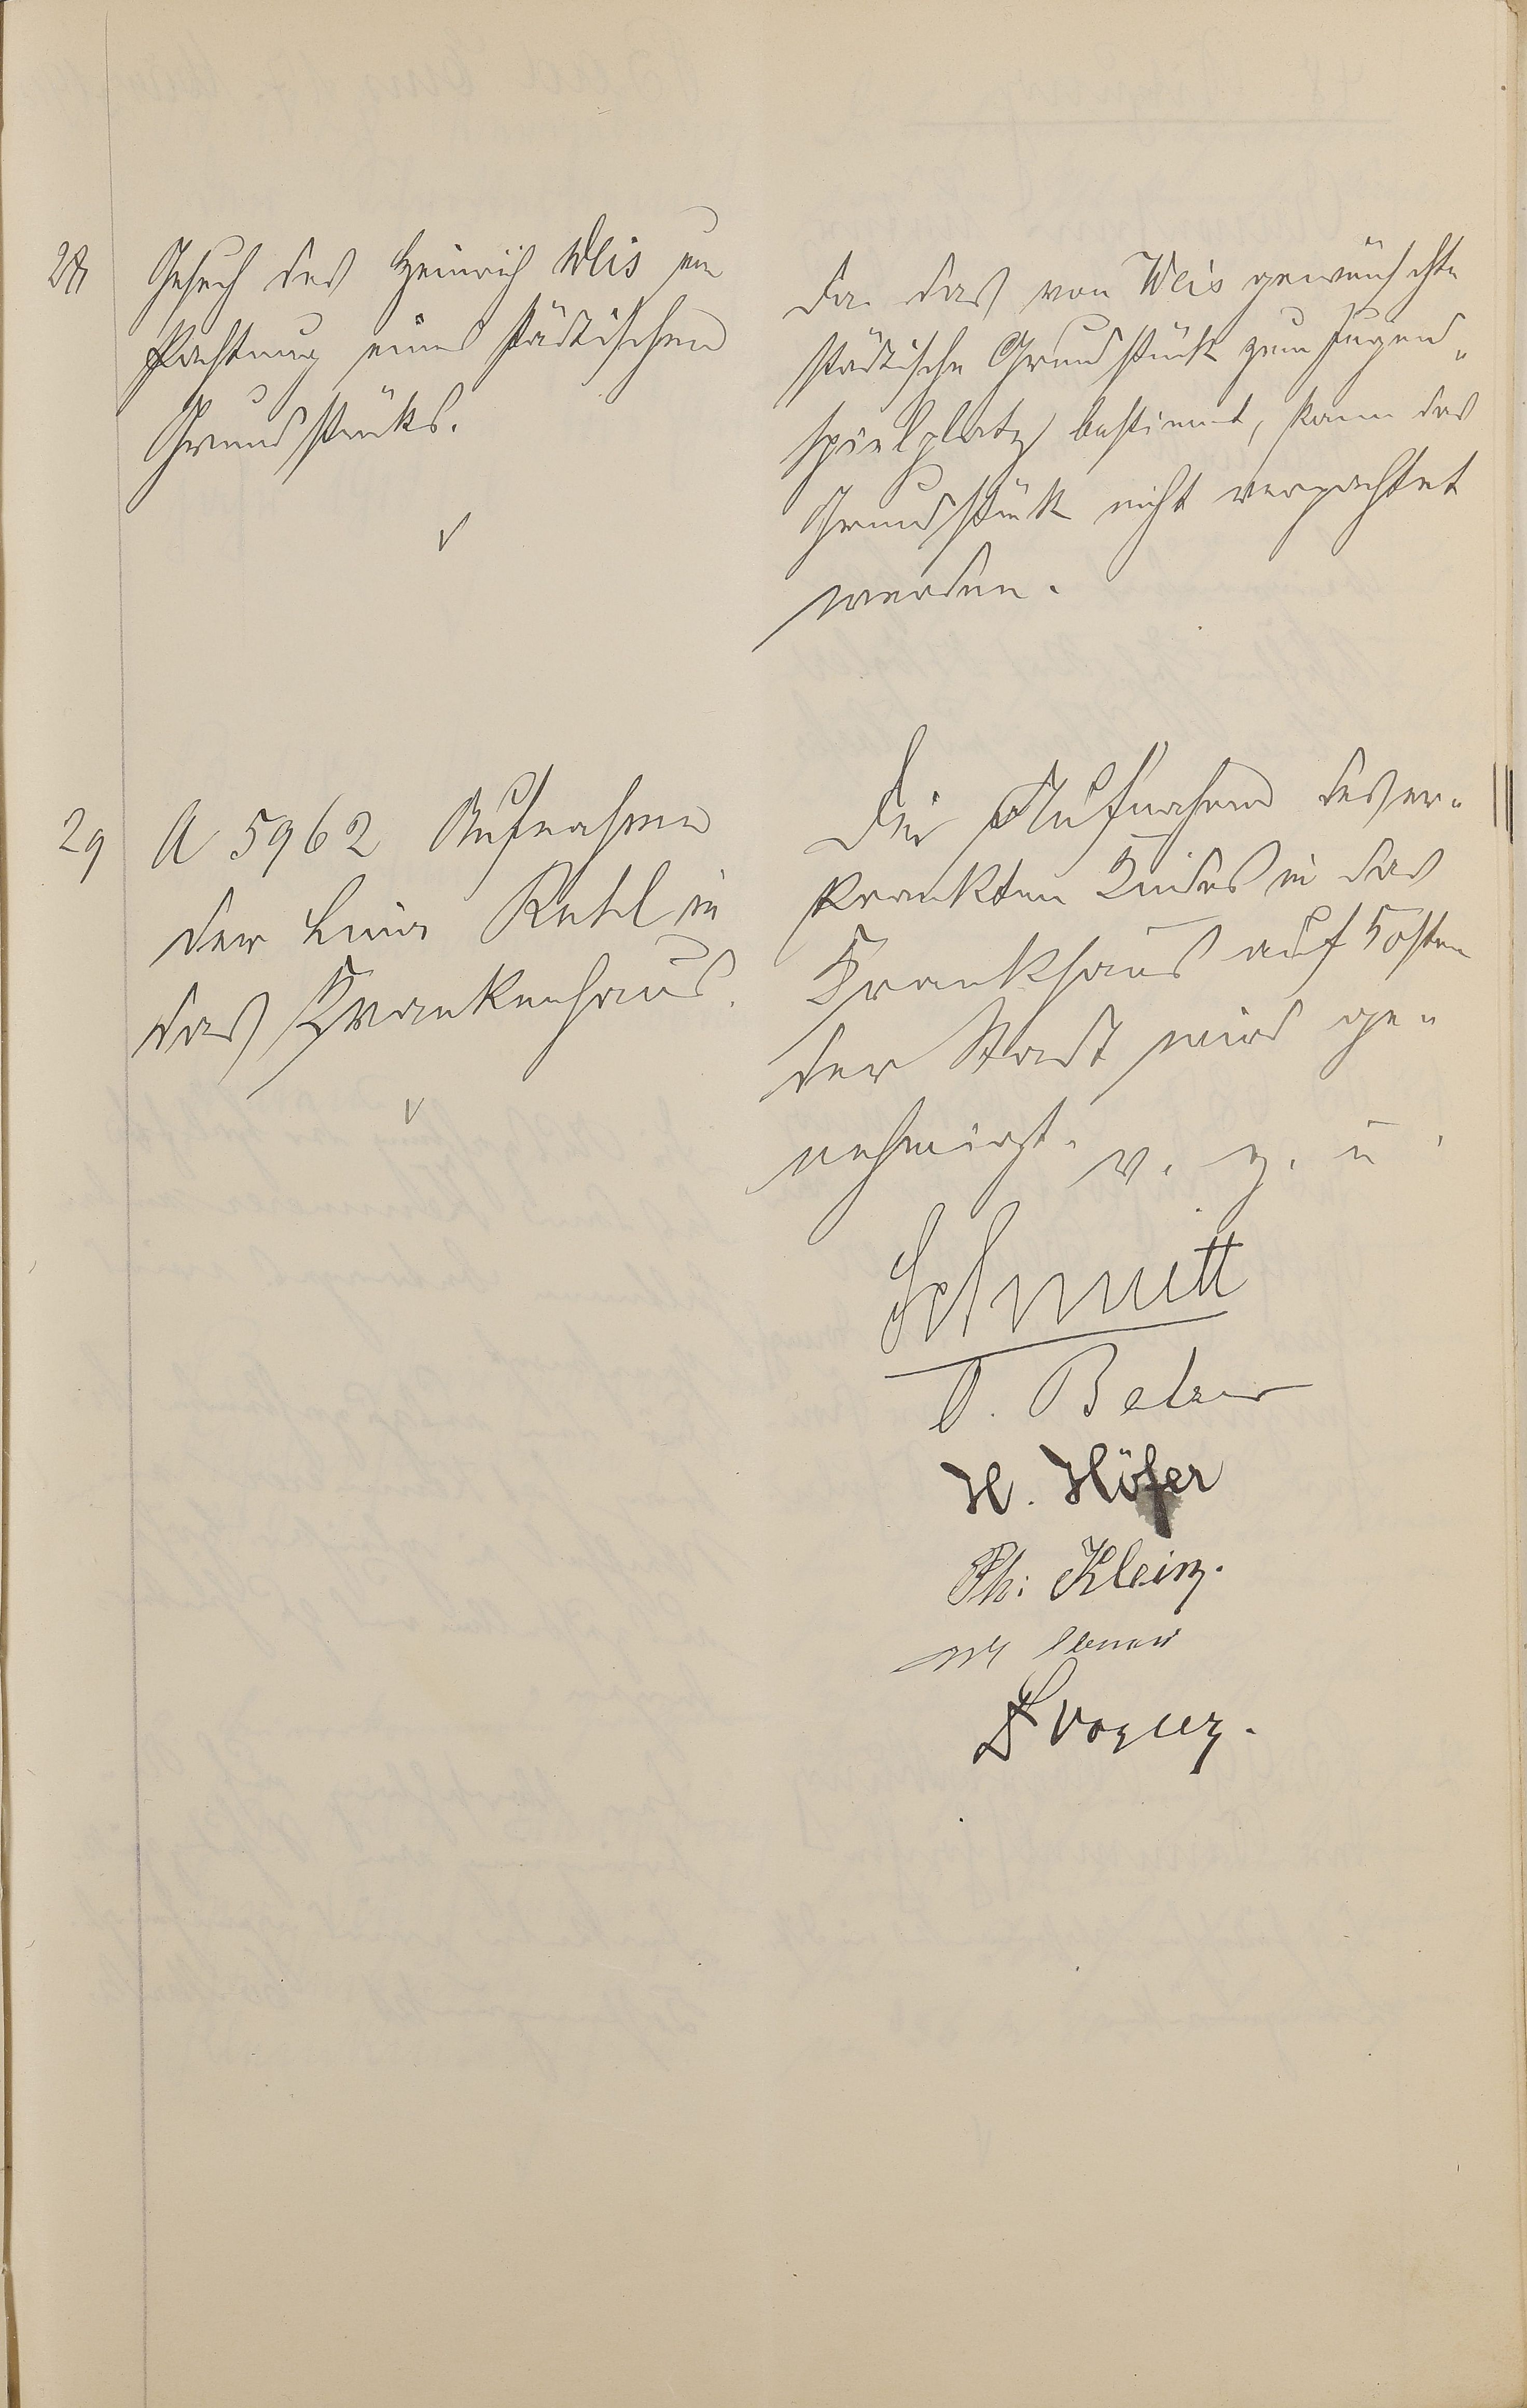 28
Gesuch des Heinrich Weis um
Pachtung eines städtischen
Grundstücks.
Da das von Weis gewünschte
städtische Grundstück zum Jugend-
spielplatz bestimmt, kann das
Grundstück nicht verpachtet
werden.
29
A 5962 Aufnahme
der Lina Retzl in
das Krankenhaus.
Die Aufnahme des er-
krankten Kindes in das
Krankhaus auf Kosten
der Stadt wird ge-
nehmigt. v. g. u.
Schmitt
H. Höfer
Ph: Klein.